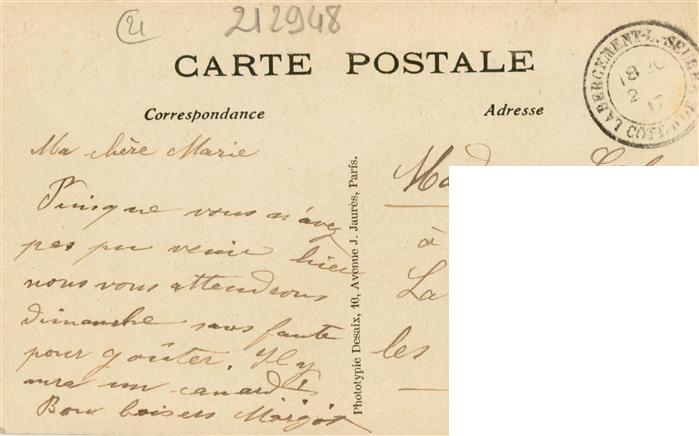 21
212948
CARTE POSTALE
Correspondance
Adresse
LABERGEMENT-L-SEURRE
CÔTE-D'OR
18
2 17
Ma chère Marie
Puisque vous n'avez
pas pu venir hier
nous vous attendrons
dimanche sans faute
pour goûter. Il y
aura un canard!
Bons baisers Margot
Phototypie Desaix, 10, Avenue J. Jaurès, Paris.
Mad
à
La
les